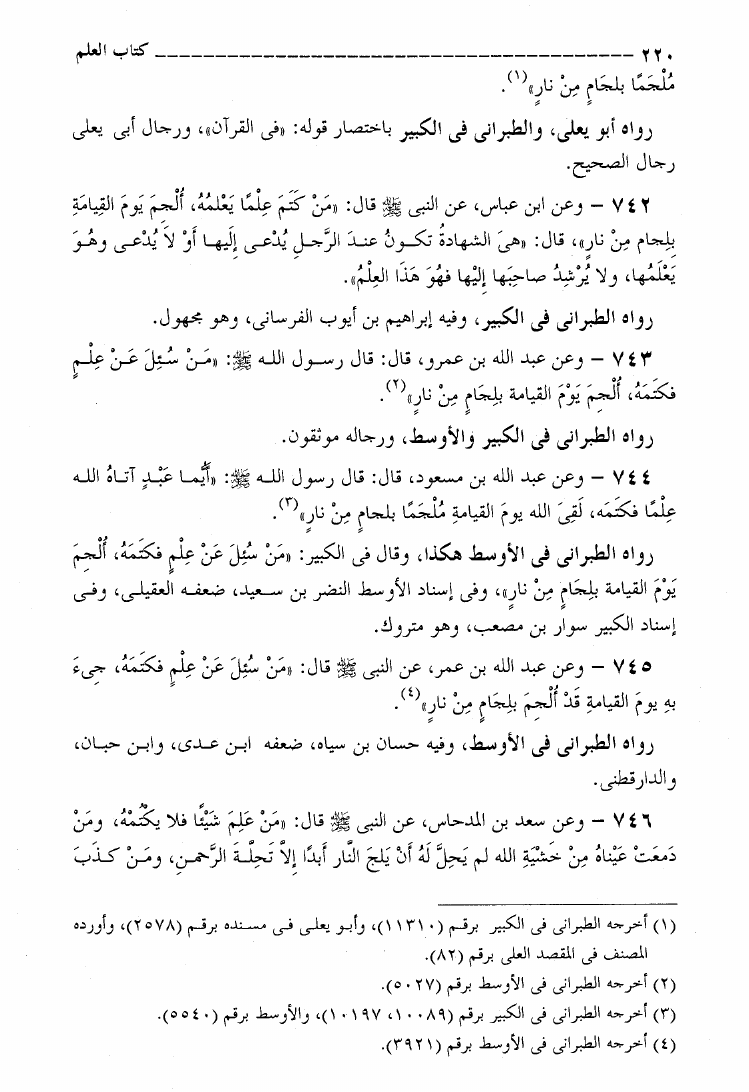 ٢٢٠ ــــــــــــــــــــــــــــــــــــــــ كتاب العلم
مُلْجَمًا بلجَامٍ مِنْ نارٍ»(١).
رواه أبو يعلى، والطبرانى فى الكبير باختصار قوله: «فى القرآن»، ورجال أبى يعلى
رجال الصحيح.
٧٤٢ – وعن ابن عباس، عن النبى ﷺ قال: «مَنْ كَتَمَ عِلْمًا يَعْلمُهُ، أُلْجِمَ يَومَ القِيامَةِ
بلِجام مِنْ نارٍ»، قال: «هىَ الشهادةُ تكونُ عندَ الرَّجلِ يُدْعى إِلَيها أوْ لاَ يُدْعى وهُوَ
يَعْلَمُها، ولا يُرْشِدُ صاحِبَها إِلَيْها فهُوَ هَذَا العِلْمُ».
رواه الطبرانى فى الكبير، وفيه إبراهيم بن أيوب الفرسانى، وهو مجهول.
٧٤٣ – وعن عبد الله بن عمرو، قال: قال رسول الله ﷺ: «مَنْ سُئِلَ عَنْ عِلْمٍ
فكتَمَهُ، أُلْجِمَ يَوْمَ القيامة بلِجَامٍ مِنْ نارٍ»(٢).
رواه الطبرانى فى الكبير والأوسط، ورجاله موثقون.
٧٤٤ – وعن عبد الله بن مسعود، قال: قال رسول الله ﷺ: «أَيُّما عَبْدٍ آتاهُ الله
عِلْمًا فكتَمَه، لَقِىَ الله يومَ القيامةِ مُلْجَمًا بلجامٍ مِنْ نارٍ»(٣).
رواه الطبرانى فى الأوسط هكذا، وقال فى الكبير: «مَنْ سُئِلَ عَنْ عِلْمٍ فكتَمَهُ، أُلْجِمَ
يَوْمَ القيامة بلِجَامٍ مِنْ نارٍ»، وفى إسناد الأوسط النضر بن سعيد، ضعفه العقيلى، وفى
إسناد الكبير سوار بن مصعب، وهو متروك.
٧٤٥ – وعن عبد الله بن عمر، عن النبى ﷺ قال: «مَنْ سُئِلَ عَنْ عِلْمٍ فكتَمَهُ، جِىءَ
بهِ يومَ القيامةِ قَدْ أُلْجِمَ بلِجَامٍ مِنْ نارٍ»(٤).
رواه الطبرانى فى الأوسط، وفيه حسان بن سياه، ضعفه ابن عدى، وابن حبان،
والدارقطنى.
٧٤٦ – وعن سعد بن المدحاس، عن النبى ﷺ قال: «مَنْ عَلِمَ شَيْئًا فلا يكْتُمْهُ، ومَنْ
دَمَعَتْ عَيْناهُ مِنْ خَشْيَةِ الله لم يَحِلَّ لَهُ أَنْ يَلجَ النَّار أبدًا إلاَّ تَحِلَّةَ الرَّحمنِ، ومَنْ كذَبَ
(١) أخرجه الطبرانى فى الكبير برقم (١١٣١٠)، وأبو يعلى فى مسنده برقم (٢٥٧٨)، وأورده
المصنف فى المقصد العلى برقم (٨٢).
(٢) أخرجه الطبرانى فى الأوسط برقم (٥٠٢٧).
(٣) أخرجه الطبرانى فى الكبير برقم (١٠٠٨٩، ١٠١٩٧)، والأوسط برقم (٥٥٤٠).
(٤) أخرجه الطبرانى فى الأوسط برقم (٣٩٢١).